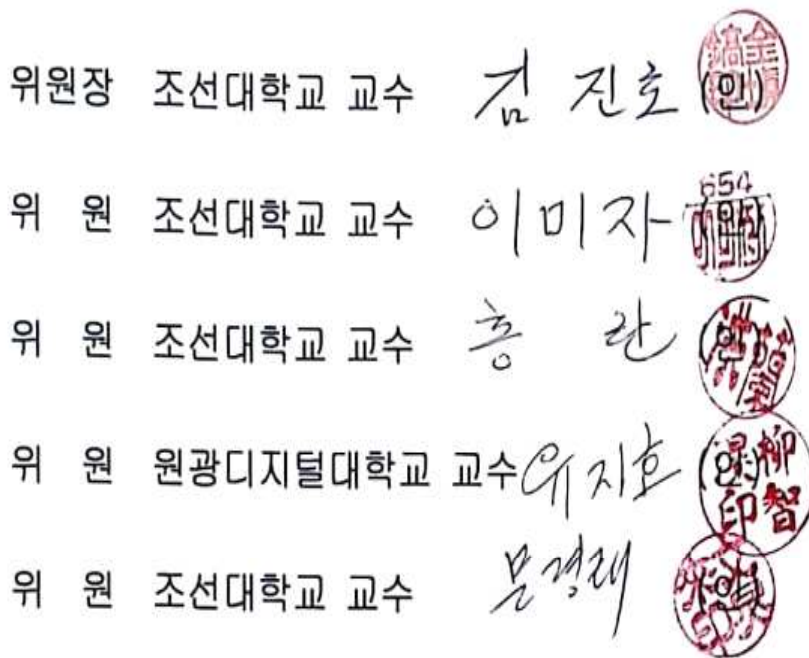 위원장 조선대학교 교수 김 진호 (인)
위 원 조선대학교 교수 이미자 (인)
위 원 조선대학교 교수 홍 란 (인)
위 원 원광디지털대학교 교수 유지호 (인) 柳智 印
위 원 조선대학교 교수 문경래 (인)
654